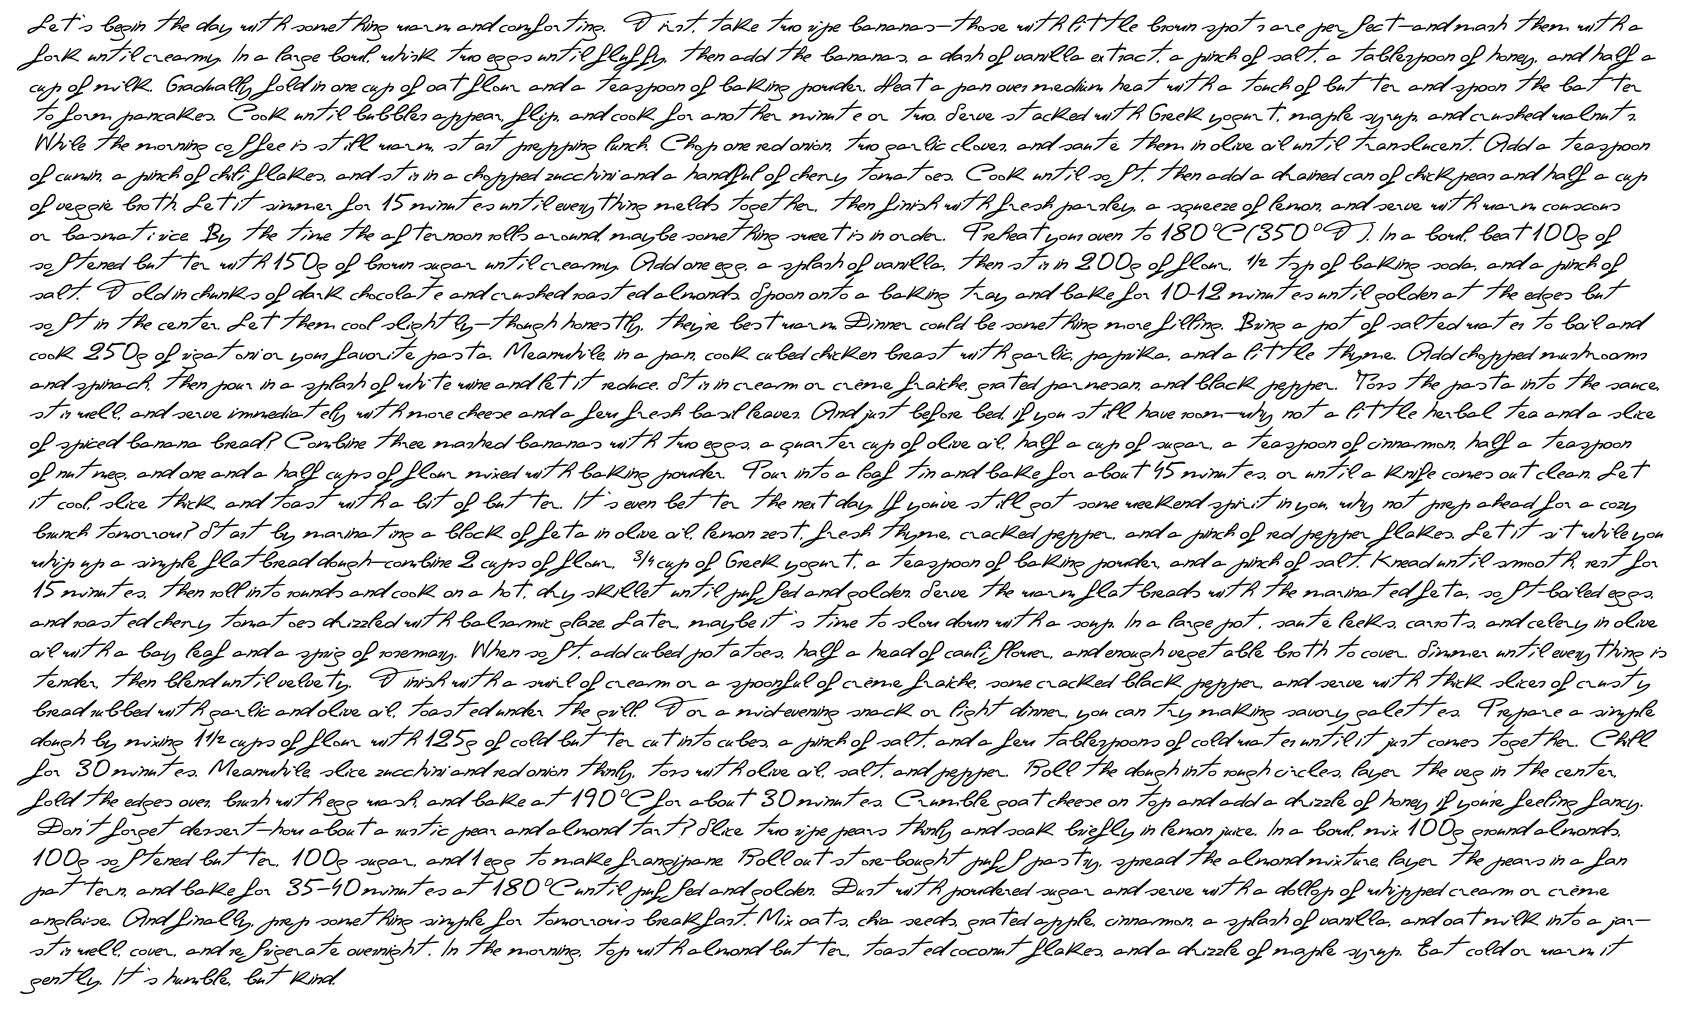 Let's begin the day with something warm and comforting. First, take two ripe bananas—those with little brown spots are perfect—and mash them with a
fork until creamy. In a large bowl, whisk two eggs until fluffy, then add the bananas, a dash of vanilla extract, a pinch of salt, a tablespoon of honey, and half a
cup of milk. Gradually fold in one cup of oat flour and a teaspoon of baking powder. Heat a pan over medium heat with a touch of butter and spoon the batter
to form pancakes. Cook until bubbles appear, flip, and cook for another minute or two. Serve stacked with Greek yogurt, maple syrup, and crushed walnuts.
While the morning coffee is still warm, start prepping lunch. Chop one red onion, two garlic cloves, and sauté them in olive oil until translucent. Add a teaspoon
of cumin, a pinch of chili flakes, and stir in a chopped zucchini and a handful of cherry tomatoes. Cook until soft, then add a drained can of chickpeas and half a cup
of veggie broth. Let it simmer for 15 minutes until everything melds together, then finish with fresh parsley, a squeeze of lemon, and serve with warm couscous
or basmati rice. By the time the afternoon rolls around, maybe something sweet is in order. Preheat your oven to 180°C (350°F). In a bowl, beat 100g of
softened butter with 150g of brown sugar until creamy. Add one egg, a splash of vanilla, then stir in 200g of flour, ½ tsp of baking soda, and a pinch of
salt. Fold in chunks of dark chocolate and crushed roasted almonds. Spoon onto a baking tray and bake for 10-12 minutes until golden at the edges but
soft in the center. Let them cool slightly—though honestly, they're best warm. Dinner could be something more filling. Bring a pot of salted water to boil and
cook 250g of rigatoni or your favorite pasta. Meanwhile, in a pan, cook cubed chicken breast with garlic, paprika, and a little thyme. Add chopped mushrooms
and spinach, then pour in a splash of white wine and let it reduce. Stir in cream or crème fraîche, grated parmesan, and black pepper. Toss the pasta into the sauce,
stir well, and serve immediately with more cheese and a few fresh basil leaves. And just before bed, if you still have room—why not a little herbal tea and a slice
of spiced banana bread? Combine three mashed bananas with two eggs, a quarter cup of olive oil, half a cup of sugar, a teaspoon of cinnamon, half a teaspoon
of nutmeg, and one and a half cups of flour mixed with baking powder. Pour into a loaf tin and bake for about 45 minutes, or until a knife comes out clean. Let
it cool, slice thick, and toast with a bit of butter. It's even better the next day. If you've still got some weekend spirit in you, why not prep ahead for a cozy
brunch tomorrow? Start by marinating a block of feta in olive oil, lemon zest, fresh thyme, cracked pepper, and a pinch of red pepper flakes. Let it sit while you
whip up a simple flatbread dough—combine 2 cups of flour, ¾ cup of Greek yogurt, a teaspoon of baking powder, and a pinch of salt. Knead until smooth, rest for
15 minutes, then roll into rounds and cook on a hot, dry skillet until puffed and golden. Serve the warm flatbreads with the marinated feta, soft-boiled eggs,
and roasted cherry tomatoes drizzled with balsamic glaze. Later, maybe it's time to slow down with a soup. In a large pot, sauté leeks, carrots, and celery in olive
oil with a bay leaf and a sprig of rosemary. When soft, add cubed potatoes, half a head of cauliflower, and enough vegetable broth to cover. Simmer until everything is
tender, then blend until velvety. Finish with a swirl of cream or a spoonful of crème fraîche, some cracked black pepper, and serve with thick slices of crusty
bread rubbed with garlic and olive oil, toasted under the grill. For a mid-evening snack or light dinner, you can try making savory galettes. Prepare a simple
dough by mixing 1½ cups of flour with 125g of cold butter cut into cubes, a pinch of salt, and a few tablespoons of cold water until it just comes together. Chill
for 30 minutes. Meanwhile, slice zucchini and red onion thinly, toss with olive oil, salt, and pepper. Roll the dough into rough circles, layer the veg in the center,
fold the edges over, brush with egg wash, and bake at 190°C for about 30 minutes. Crumble goat cheese on top and add a drizzle of honey if you're feeling fancy.
Don't forget dessert—how about a rustic pear and almond tart? Slice two ripe pears thinly and soak briefly in lemon juice. In a bowl, mix 100g ground almonds,
100g softened butter, 100g sugar, and 1 egg to make frangipane. Roll out store-bought puff pastry, spread the almond mixture, layer the pears in a fan
pattern, and bake for 35-40 minutes at 180°C until puffed and golden. Dust with powdered sugar and serve with a dollop of whipped cream or crème
anglaise. And finally, prep something simple for tomorrow's breakfast. Mix oats, chia seeds, grated apple, cinnamon, a splash of vanilla, and oat milk into a jar—
stir well, cover, and refrigerate overnight. In the morning, top with almond butter, toasted coconut flakes, and a drizzle of maple syrup. Eat cold or warm it
gently. It's humble, but kind.